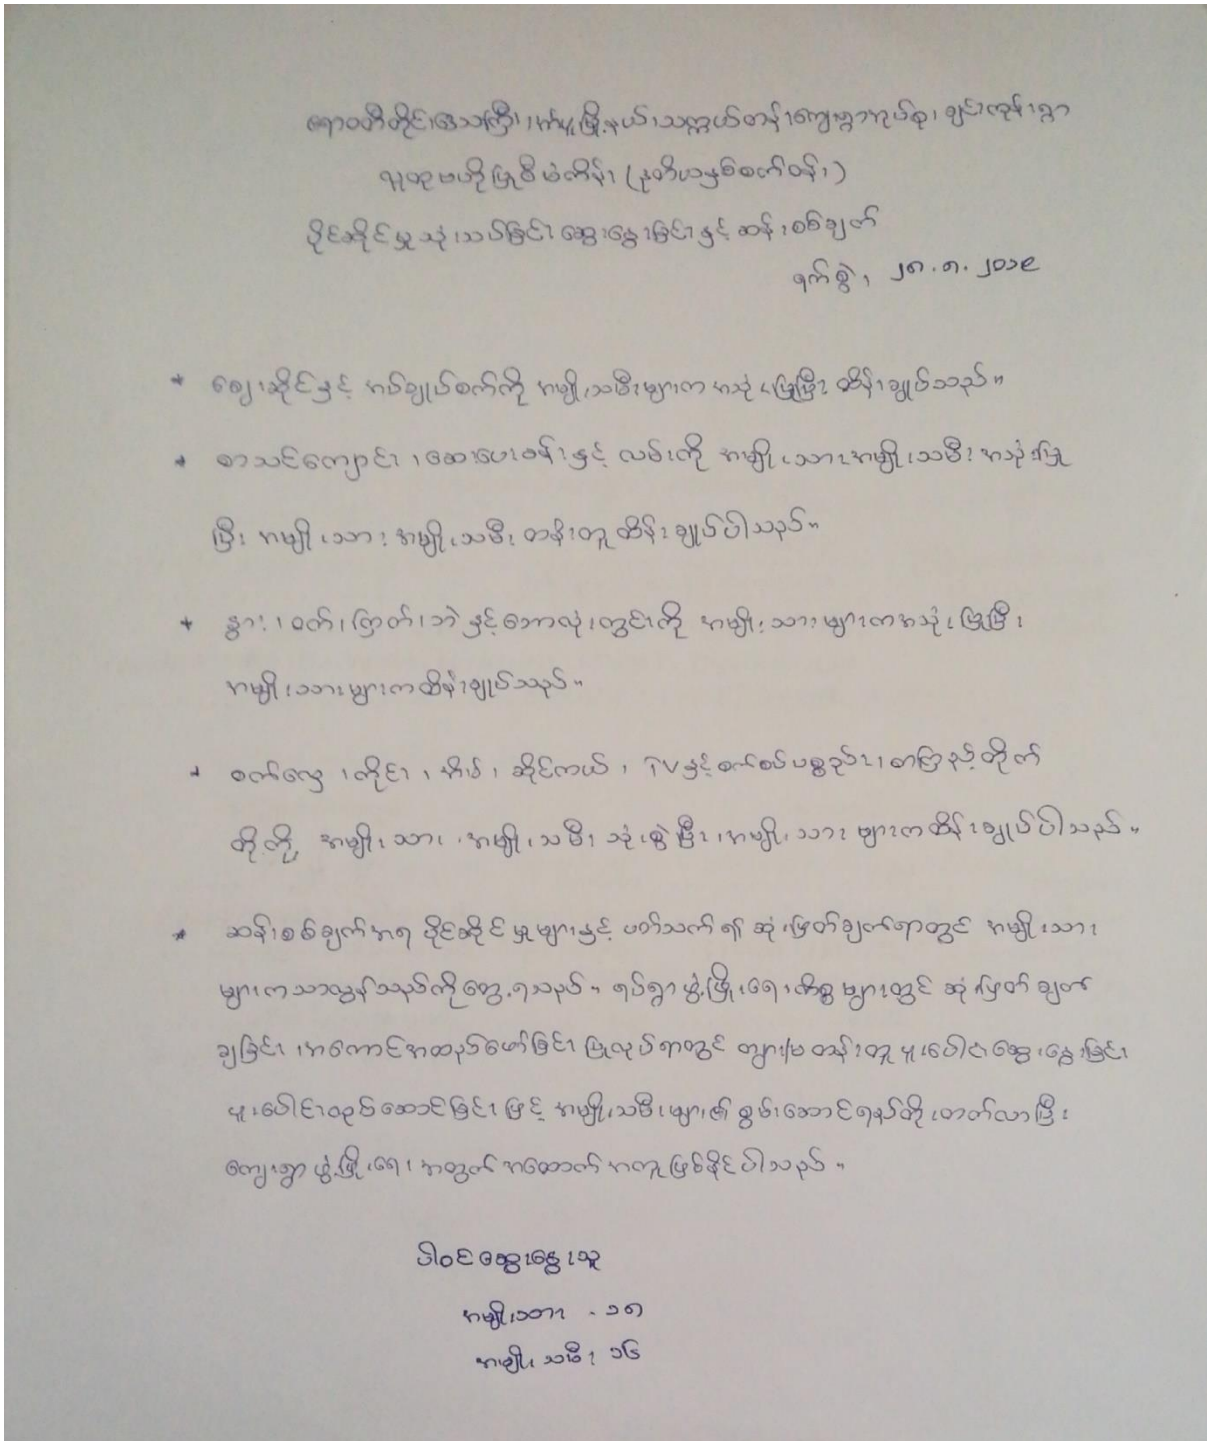 ဧရာဝတီတိုင်းဒေသကြီး၊ ငပုတောမြို့နယ်၊ သက္ကယ်တန်းကျေးရွာအုပ်စု၊ ချင်းကုန်းရွာ
လူထုဗဟိုပြုစီမံကိန်း (ဒုတိယနှစ်စက်ဝန်း)
ပိုင်ဆိုင်မှုသုံးသပ်ခြင်း ဆွေးနွေးခြင်းနှင့် ဆန်းစစ်ချက်
ရက်စွဲ၊ ၂၈.၈.၂၀၁၉
* ဈေးဆိုင်နှင့် အပ်ချုပ်စက်ကို အမျိုးသမီးများက အသုံးပြုပြီး ထိန်းချုပ်သည်။
* စာသင်ကျောင်း၊ ဆေးပေးခန်းနှင့် လမ်းကို အမျိုးသား အမျိုးသမီး အသုံးပြု
ပြီး အမျိုးသား အမျိုးသမီး တန်းတူ ထိန်းချုပ်ပါသည်။
* နွား၊ ဝက်၊ ကြက်၊ ဘဲ နှင့် ဘောလုံးကွင်းကို အမျိုးသားများက အသုံးပြုပြီး
အမျိုးသားများက ထိန်းချုပ်သည်။
* စက်လှေ၊ ကိုင်း၊ အိမ်၊ ဆိုင်ကယ်၊ TV နှင့် စက်စပ်ပစ္စည်း၊ စာကြည့်တိုက်
တို့ကို အမျိုးသား၊ အမျိုးသမီး သုံးစွဲပြီး၊ အမျိုးသားများက ထိန်းချုပ်ပါသည်။
* ဆန်းစစ်ချက်အရ ပိုင်ဆိုင်မှုများနှင့် ပတ်သက်၍ ဆုံးဖြတ်ချက်ရာတွင် အမျိုးသား
များက သာလွန်သည်ကို တွေ့ရသည်။ ရပ်ရွာဖွံ့ဖြိုးရေးကိစ္စများတွင် ဆုံးဖြတ်ချက်
ချခြင်း၊ အကောင်အထည်ဖော်ခြင်း ပြုလုပ်ရာတွင် ကျား/မ တန်းတူ ပူးပေါင်းဆွေးနွေးခြင်း
ပူးပေါင်းလုပ်ဆောင်ခြင်း ဖြင့် အမျိုးသမီးများ၏ စွမ်းဆောင်ရည်တိုးတက်လာပြီး
ကျေးရွာဖွံ့ဖြိုးရေး အတွက် အထောက်အကူဖြစ်နိုင်ပါသည်။
ပါဝင်ဆွေးနွေးသူ
အမျိုးသား - ၁၈
အမျိုးသမီး ၁၆